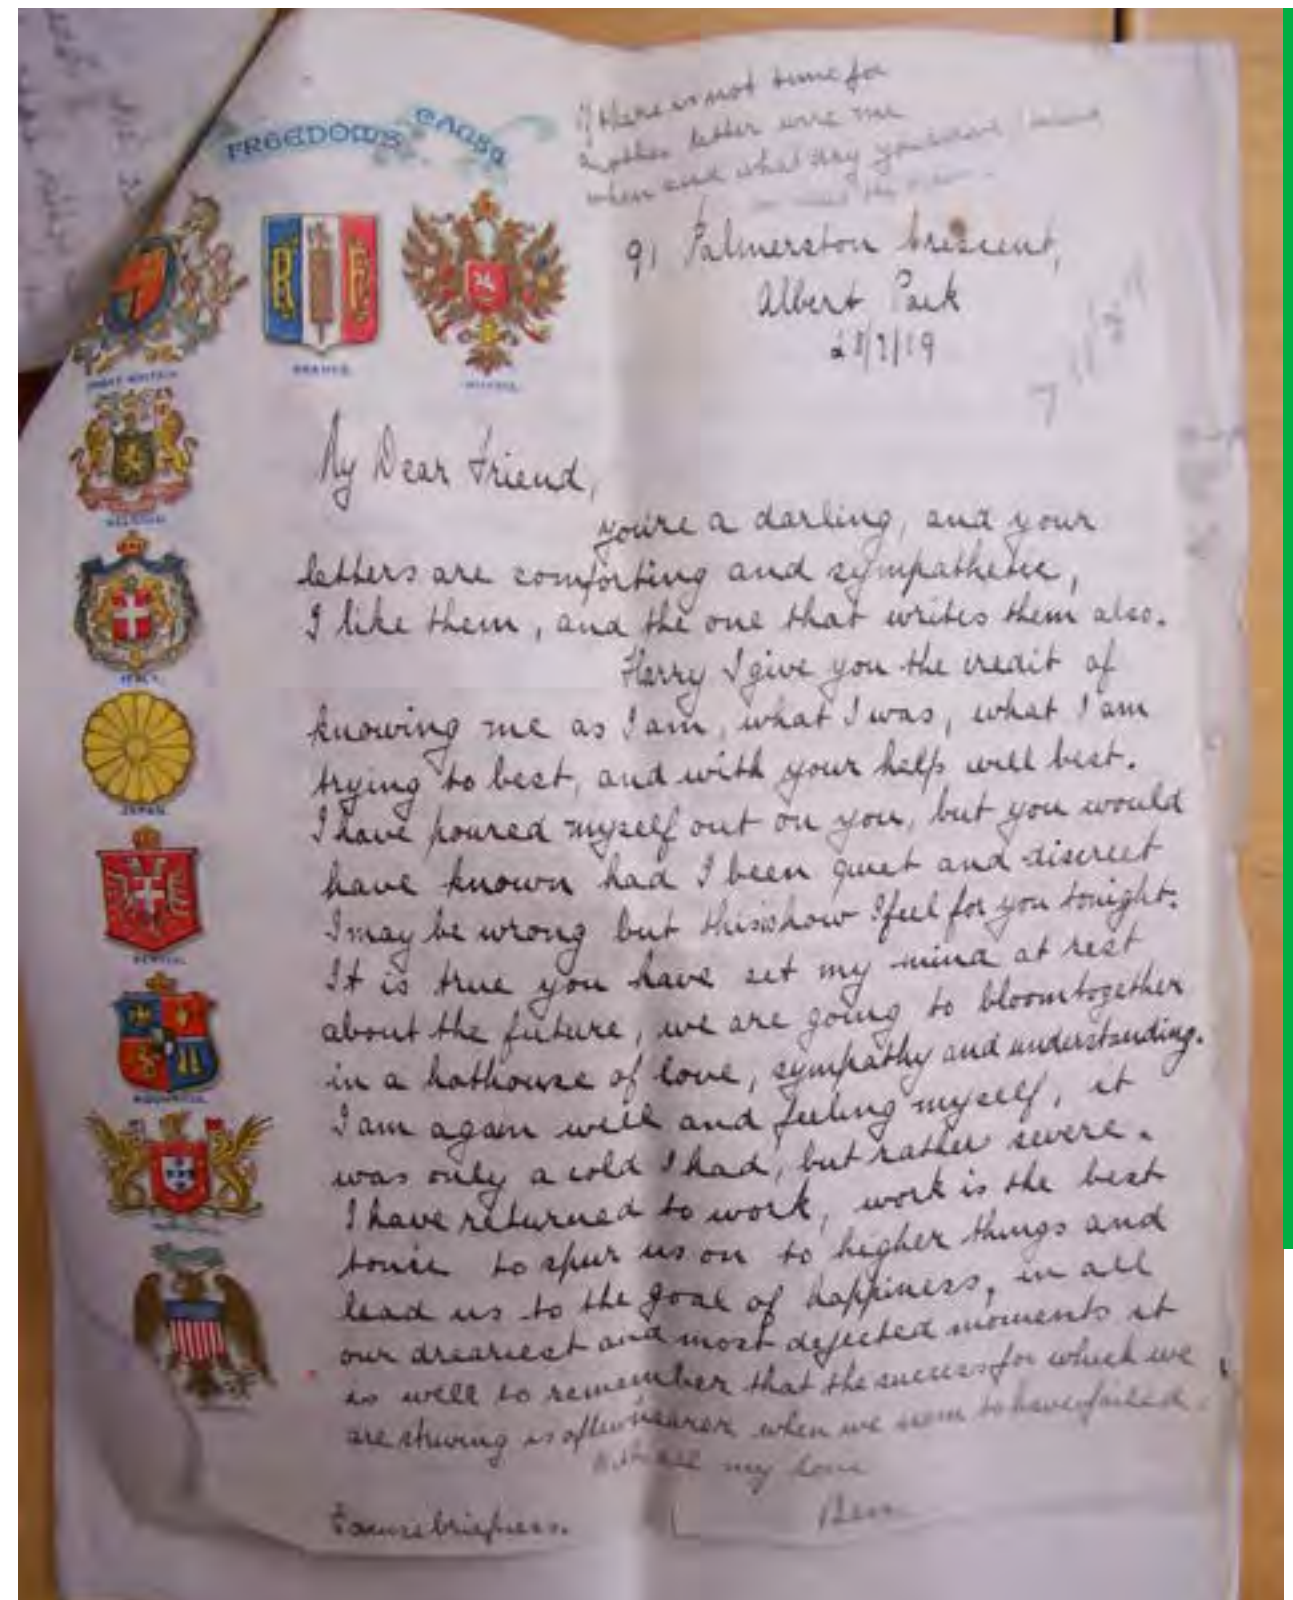 If there is not time for
another letter wire me
when and what day you
FREEDOM'S CAUSE
91 Palmerston Crescent,
Albert Park
GREAT BRITAIN
FRANCE
RUSSIA
BELGIUM
ITALY
JAPAN
SERVIA
ROUMANIA
My Dear Friend,
you're a darling, and your
letters are comforting and sympathetic,
I like them, and the one that writes them also.
Harry I give you the credit of
knowing me as I am, what I was, what I am
trying to best, and with your help will best.
I have poured myself out on you, but you would
have known had I been quiet and discreet
I may be wrong but this is how I feel for you tonight.
It is true you have set my mind at rest
about the future, we are going to bloom together
in a hothouse of love, sympathy and understanding.
I am again well and feeling myself, it
was only a cold I had, but rather severe.
I have returned to work, work is the best
tonic to spur us on to higher things and
lead us to the goal of happiness, in all
our dreariest and most dejected moments it
is well to remember that the success for which we
are striving is often nearer when we seem to have failed.
With all my love
Excuse briefness.